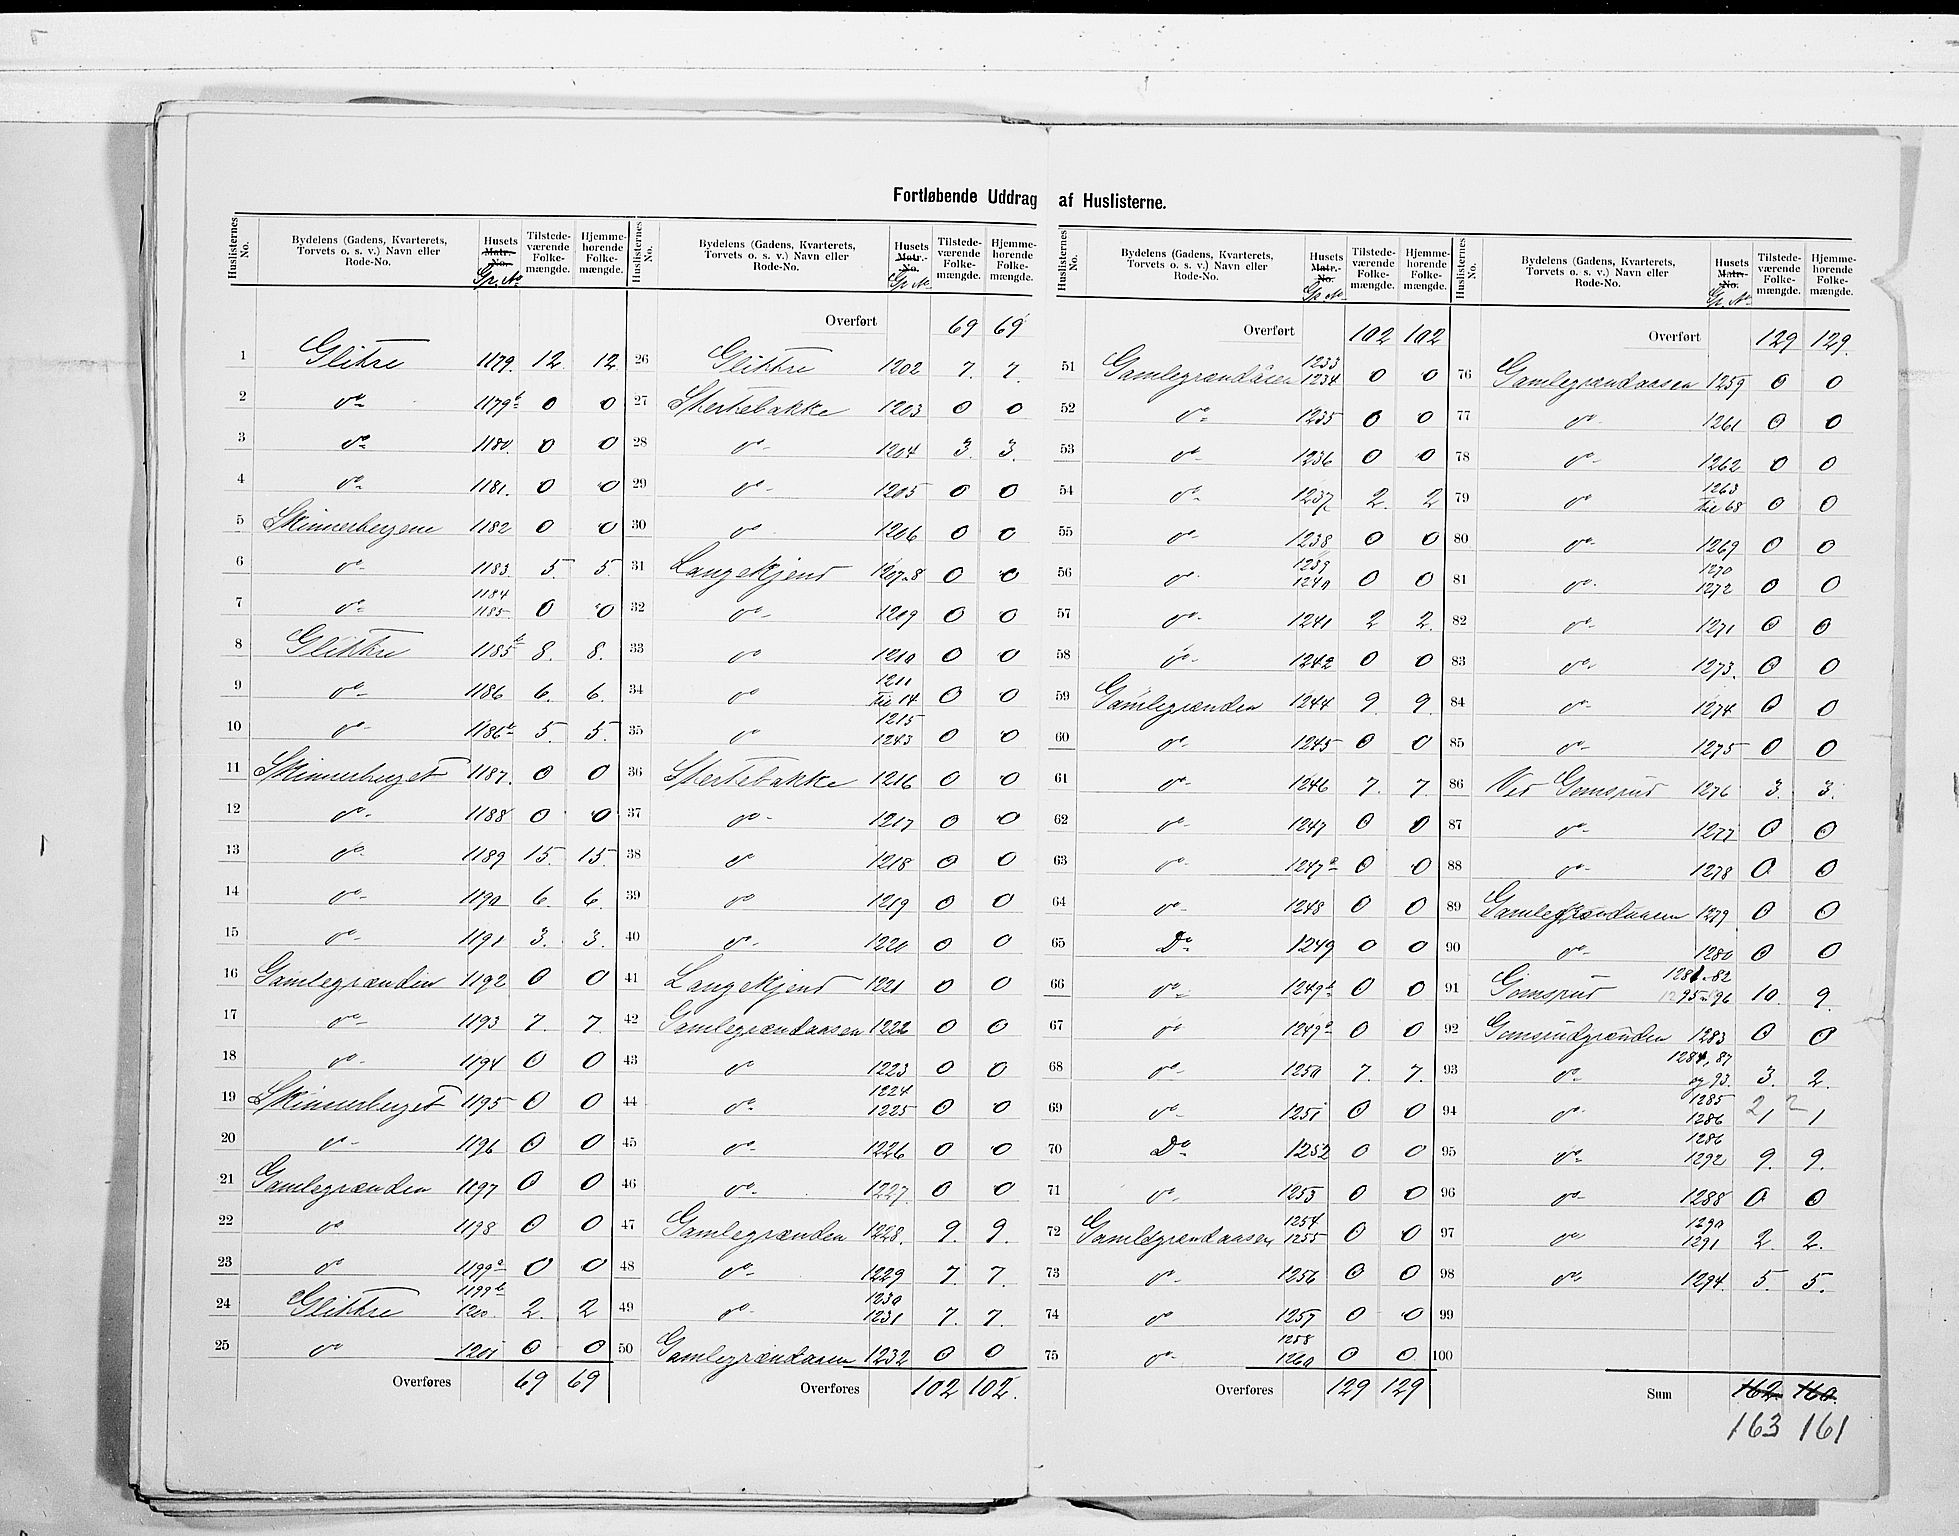 Fortløbende Uddrag af Huslisterne.
Huslisternes No. Bydelens (Gadens, Kvarterets, Torvets o. s. v.) Navn eller Rode-No. Husets Matr.-No. Gr. No Tilstedeværende Folkemængde. Hjemmehørende Folkemængde.
1 Glitre 1179. 12. 12.
2 do 1179b 0 0
3 do 1180. 0 0
4 do 1181. 0 0
5 Skinnerbergene 1182 0 0
6 do 1183. 5. 5.
7 do 1184 1185. 0 0
8 Glittre 1185b 8. 8.
9 do 1186 6. 6.
10 do 1186b 5. 5.
11 Skinnerberget 1187. 0 0
12 do 1188 0 0
13 do 1189 15. 15.
14 do 1190 6. 6.
15 do 1191 3. 3.
16 Gamlegrænden 1192 0 0
17 do 1193 7. 7.
18 do 1194 0 0
19 Skinnerberget 1195 0 0
20 do 1196 0 0
21 Gamlegrænden 1197 0 0
22 do 1198 0 0
23 do 1199a 0 0
24 Glittre 1199b 1200. 2. 2
25 do 1201 0 0
Overføres 69 69
Huslisternes No. Bydelens (Gadens, Kvarterets, Torvets o. s. v.) Navn eller Rode-No. Husets Matr.-No. Gr No. Tilstedeværende Folkemængde. Hjemmehørende Folkemængde.
Overført 69 69
26 Glittre 1202 7. 7.
27 Stertebakke 1203 0 0
28 do 1204 3. 3.
29 do 1205 0 0
30 do 1206 0 0
31 Langekjend 1207-8 0 0
32 do 1209 0 0
33 do 1210 0 0
34 do 1211 til 14 0 0
35 do 1215 1243 0 0
36 Stertebakke 1216 0 0
37 do 1217 0 0
38 do 1218 0 0
39 do 1219 0 0
40 do 1220 0 0
41 Langekjend 1221 0 0
42 Gamlegrændaasen 1222 0 0
43 do 1223 0 0
44 do 1224 1225 0 0
45 do 1226 0 0
46 do 1227. 0 0
47 Gamlegrænden 1228. 9. 9.
48 do 1229 7. 7.
49 do 1230 1231 7. 7.
50 Gamlegrændaasen 1232 0 0
Overføres 102 102.
Huslisternes No. Bydelens (Gadens, Kvarterets, Torvets o. s. v.) Navn eller Rode-No. Husets Matr.-No. Gr No. Tilstedeværende Folkemængde. Hjemmehørende Folkemængde.
Overført 102 102
51 Gamlegrændåsen 1233 1234 0 0
52 do 1235 0 0
53 do 1236 0 0
54 do 1237 2. 2
55 do 1238 0 0
56 do 1239 1240 0 0
57 do 1241 2 2.
58 do 1242 0 0
59 Gamlegrænden 1244 9. 9.
60 do 1245 0 0
61 do 1246 7. 7.
62 do 1247 0 0
63 do 1247a 0 0
64 do 1248 0 0
65 Do 1249 0 0
66 do 1249b 0 0
67 do 1249a 0 0
68 do 1250 7. 7.
69 do 1251 0 0
70 Do 1252 0 0
71 do 1253 0 0
72 Gamlegrændaasen 1254 1255 0 0
73 do 1256 0 0
74 do 1257 0 0
75 do 1258 1260 0 0.
Overføres 129 129
Huslisternes No. Bydelens (Gadens, Kvarterets, Torvets o. s. v.) Navn eller Rode-No. Husets Matr.-No. Gr. No. Tilstedeværende Folkemængde. Hjemmehørende Folkemængde.
Overført 129 129.
76 Gamlegrændaasen 1259 0 0
77 do 1261 0 0
78 do 1262 0 0
79 do 1263 til 68 0 0
80 do 1269 0 0
81 do 1270 1272 0 0
82 do 1271 0 0
83 do 1273. 0 0
84 do 1274 0 0
85 do 1275 0 0
86 Ved Gomsrud 1276 3. 3.
87 do 1277 0 0
88 do 1278 0. 0
89 Gamlegrændaasen 1279 0 0
90 do 1280 0 0
91 Gomsrud 1281-82 1295-96 10. 9.
92 Gomsrudgrænden 1283 0 0
93 do 1284, 87 og 93. 3. 2.
94 do 1285 1286 2 1 2 1
95 do 1286 1292 9. 9.
96 do 1288 0 0
97 do 1290 1291 2. 2.
98 do 1294. 5. 5.
99
100
Sum 162. 160.
163 161